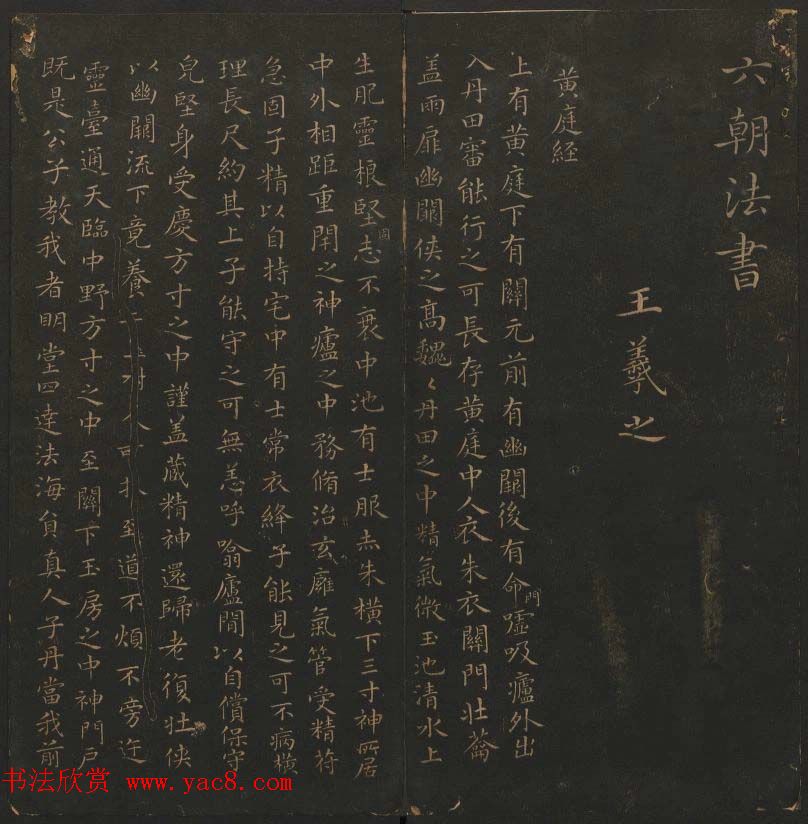 六朝法書
王羲之
黄庭経
上有黄庭下有關元前有幽闕後有命門嘘吸廬外出
入丹田審能行之可長存黄庭中人衣朱衣關門壮籥
盖兩扉幽闕侠之髙魏〻丹田之中精氣微玉池清水上
生肥靈根堅固志不衰中池有士服赤朱横下三寸神所居
中外相距重閇之神廬之中務脩治玄廱氣管受精符
急固子精以自持宅中有士常衣絳子能見之可不病横
理長尺約其上子能守之可無恙呼噏廬閒以自償保守
皃堅身受慶方寸之中謹盖蔵精神還歸老復壮侠
以幽闕流下竟養至道不煩不旁迕
靈臺通天臨中野方寸之中至關下玉房之中神門户
既是公子教我者明堂四達法海員真人子丹當我前
书法欣赏 www.yac8.com